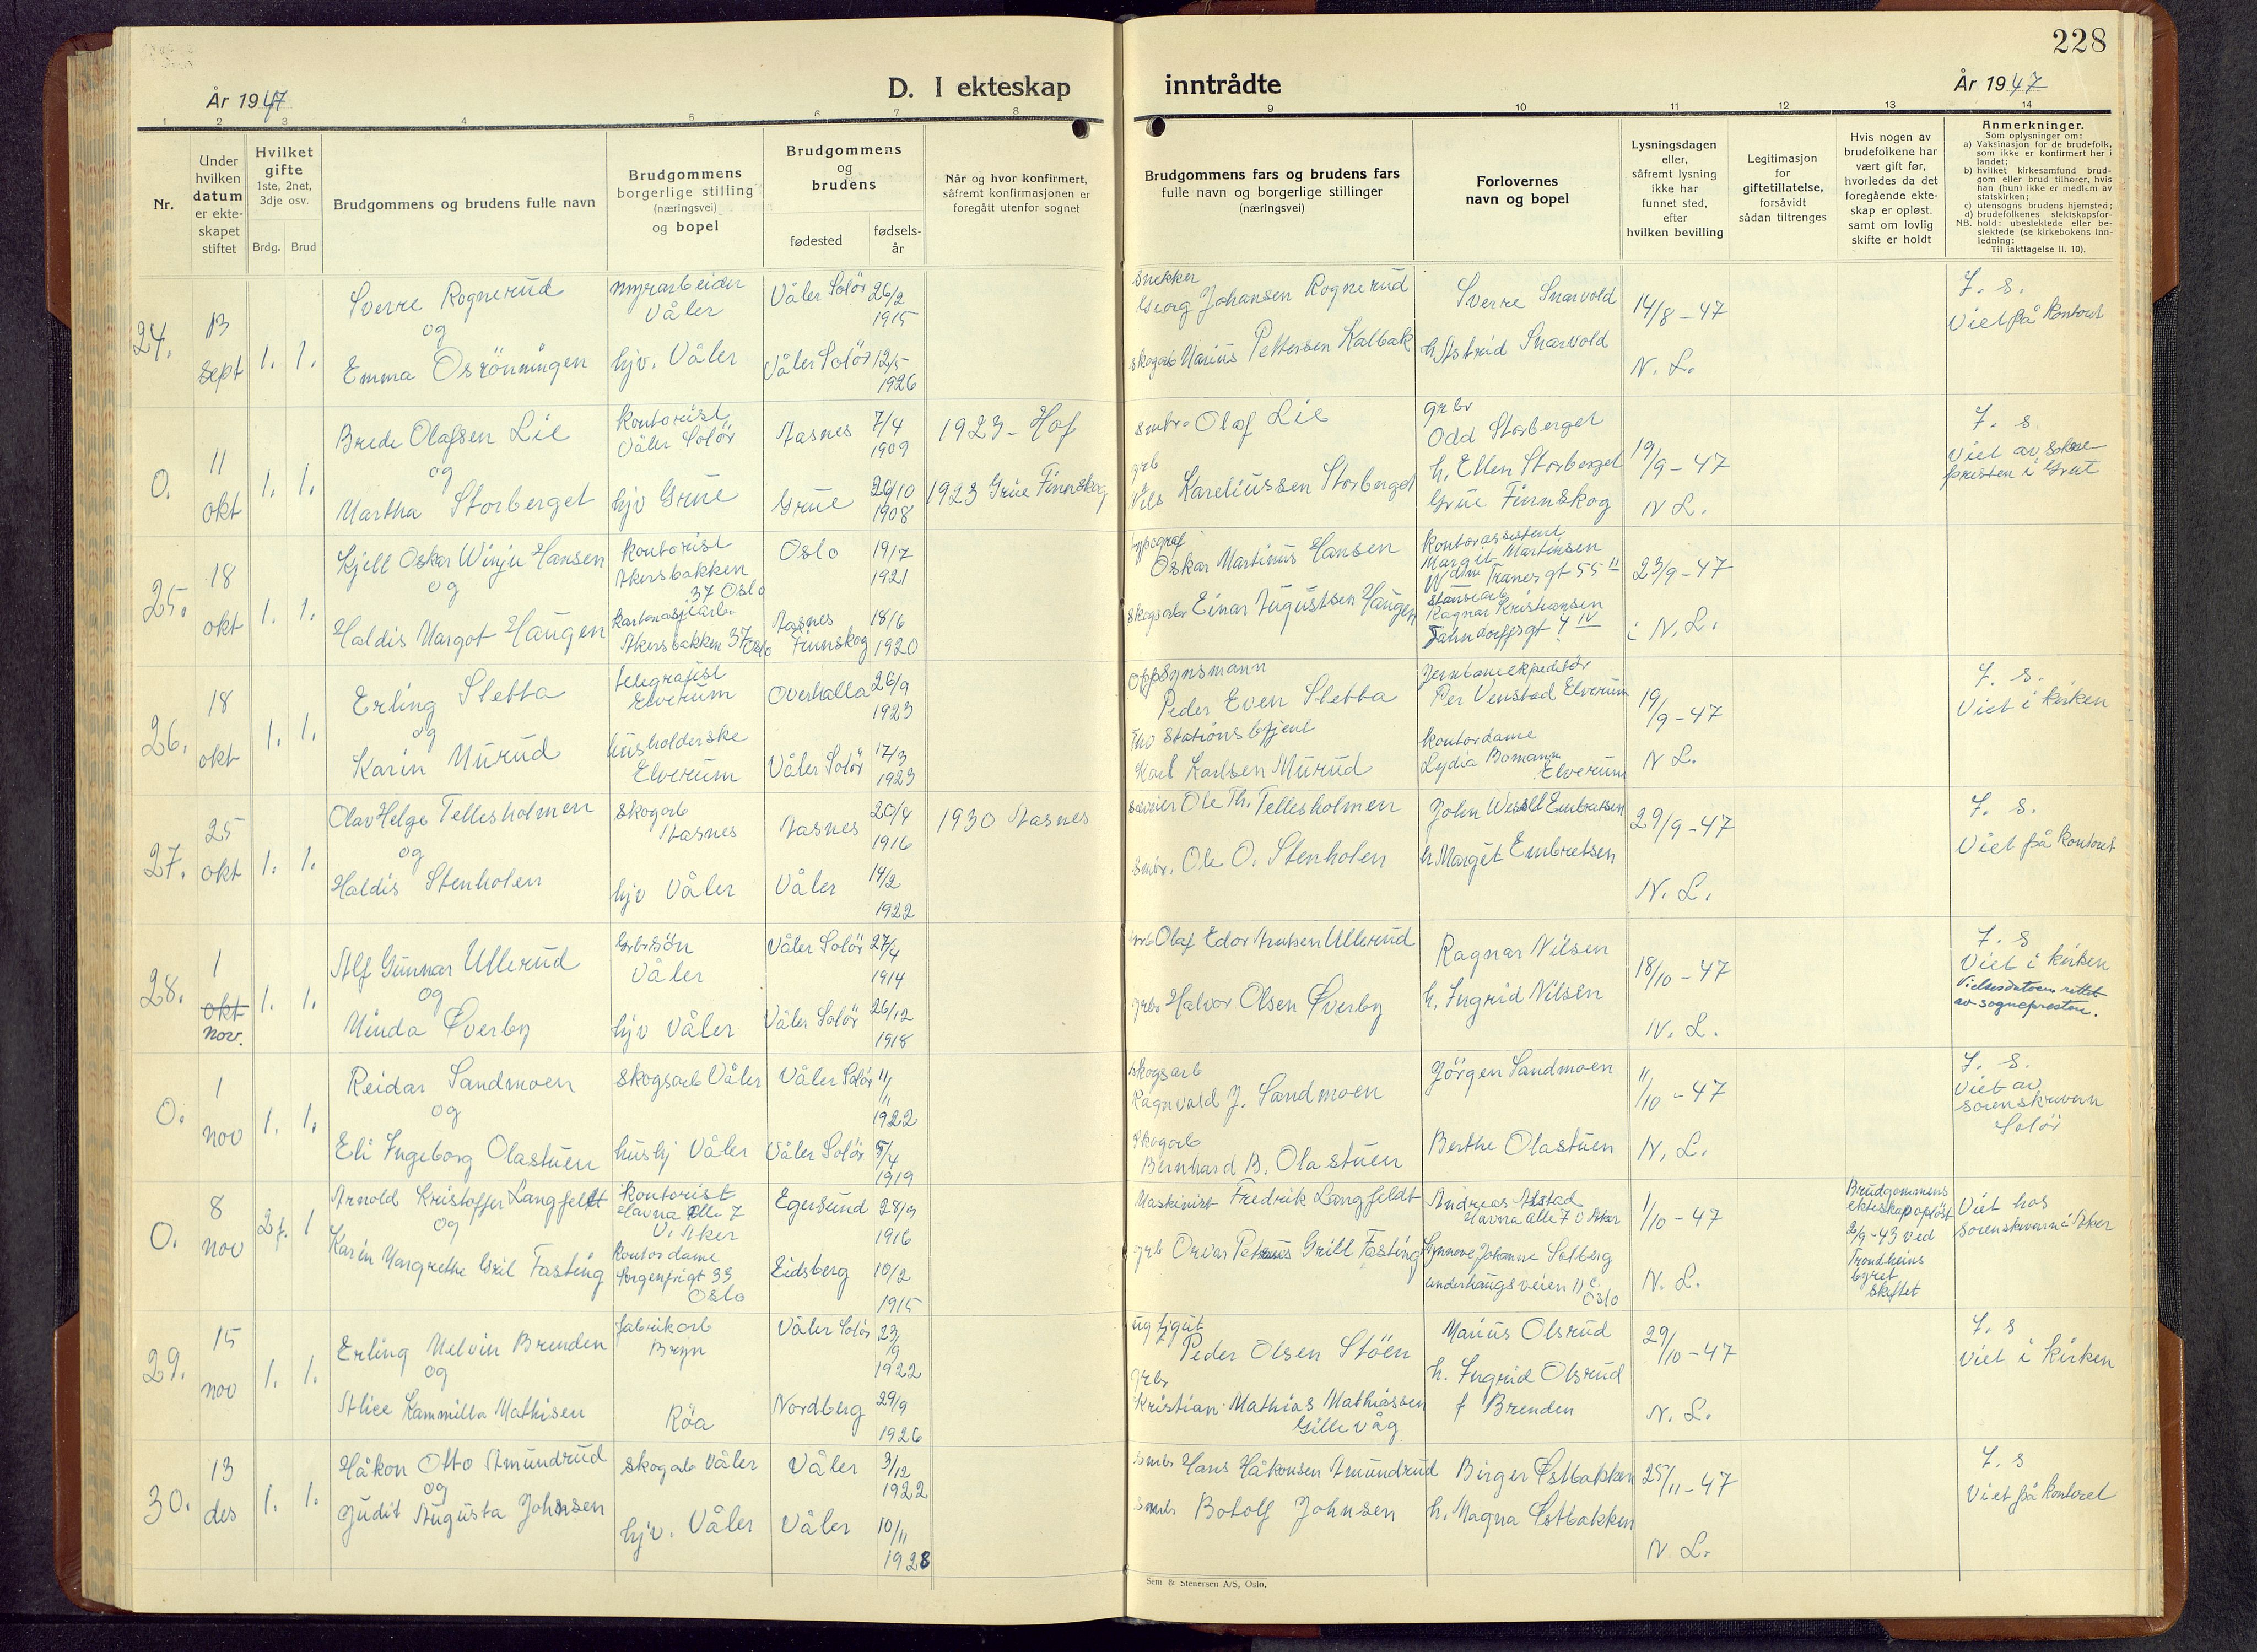 228
År 1947
D. I ekteskap
inntrådte
År 1947
1 2 3 4 5 6 7 8 9 10 11 12 13 14
Nr.
Under
hvilken
datum
er ekte-
skapet
stiftet
Hvilket
gifte
1ste, 2net,
3dje osv.
Brdg. Brud
Brudgommens og brudens fulle navn
Brudgommens
borgerlige stilling
(næringsvei)
og bopel
Brudgommens
og
brudens
fødested
fødsels-
år
Når og hvor konfirmert,
såfremt konfirmasjonen er
foregått utenfor sognet
Brudgommens fars og brudens fars
fulle navn og borgerlige stillinger
(næringsvei)
Forlovernes
navn og bopel
Lysningsdagen
eller,
såfremt lysning
ikke har
funnet sted,
efter
hvilken bevilling
Legitimasjon
for
giftetillatelse,
forsåvidt
sådan tiltrenges
Hvis nogen av
brudefolkene har
vært gift før,
hvorledes da det
foregående ekte-
skap er opløst,
samt om lovlig
skifte er holdt
Anmerkninger.
Som oplysninger om:
a) Vaksinasjon for de brudefolk,
som ikke er konfirmert her i
landet;
b) hvilket kirkesamfund brud-
gom eller brud tilhører, hvis
han (hun) ikke er medlem av
statskirken;
c) utensogns brudens hjemsted;
d) brudefolkenes slektskapsfor-
NB. hold: ubeslektede eller be-
slektede (se kirkebokens inn-
ledning:
Til iakttagelse li. 10).
24.
13
sept
1. 1.
Sverre Rognerud
og
Emma Osrönningen
myrarbeider
Våler
hjv. Våler
Våler Solör
26/2
1915
Våler Solör
12/5
1926
Snekker
Georg Johansen Rognerud
skogarb Marius Pettersen Kalbak
Sverre Snarvold
h. Astrid Snarvold
14/8 - 47
N. L.
F. s.
Viet på kontoret
O.
11
okt
1. 1.
Brede Olafsen Lie
og
Martha Storberget
kontorist
Våler Solör
hjv Grue
Aasnes
7/4
1909
Grue
29/10
1908
1923 - Hof
1923 Grue Finnskog
smbr. Olaf Lie
grb
Nils Kareliussen Storberget
grbr
Odd Storberget
h. Ellen Storberget
Grue Finnskog
19/9 - 47
N L.
F. s
Viet av sokne-
presten i Grue
25.
18
okt
1. 1.
Kjell Oskar Winju Hansen
og
Haldis Margot Haugen
kontorist
Akersbakken
37 Oslo
kartonasjearb.
Akersbakken 37 Oslo
Oslo
19/7
1921
Aasnes
Finnskog
18/6
1920
typograf
Oskar Martinus Hansen
skogsarb Einar Augustsen Haugen
kontorassistent
Margit Martinsen
Wdm Tranes gt 55 II
stansearb
Ragnar Kristiansen
Fahndorffsgt 4 IV
23/9 - 47
i N. L.
26.
18
okt
1. 1.
Erling Sletta
og
Karin Murud
telegrafist
Elverum
husholderske
Elverum
Overhalla
26/9
1923
Våler Solör
17/3
1923
Oppsynsmann
Peder Even Sletta
Stationsbetjent
Karl Karlsen Murud
Jernbaneekspeditör
Per Venstad Elverum
kontordame
Lydia Bomann
Elverum
19/9 - 47
N L.
F. s.
Viet i kirken
27.
25
okt
1. 1.
Olav Helge Tellesholmen
og
Haldis Stenholen
skogarb
Aasnes
hjv Våler
Aasnes
20/4
1916
Våler
14/2
1922
1930 Aasnes
Ole Th. Tellesholmen
Ole O. Stenholen
John Wessel Embretsen
h. Margit Embretsen
29/9 - 47
N. L.
F. s.
Viet på kontoret
28.
1
okt
nov.
1. 1.
Alf Gunnar Ullerud
og
Minda Øverby
Grbrsön
Våler
hjv Våler
Våler Solör
27/4
1914
Våler Solör
26/12
1918
Olaf Edor Arntsen Ullerud
grbr Halvor Olsen Øverby
Ragnar Nilsen
h. Ingrid Nilsen
18/10 - 47
N. L.
F. s
Viet i kirken
Vielsesdatoen rettet
av sognepresten.
O.
1
nov
1. 1.
Reidar Sandmoen
og
Eli Ingeborg Olastuen
skogsarb Våler
hushj Våler
Våler Solör
11/11
1922
Våler Solör
5/4
1919
skogsarb
Ragnvald J. Sandmoen
skogarb
Bernhard B. Olastuen
Jörgen Sandmoen
Berthe Olastuen
11/10 - 47
N. L.
F. s.
Viet av
sorenskriveren
Solör
O.
8
nov
2 f. 1
Arnold Kristoffer Langfeldt
og
Karin Margrethe Gril Fasting
kontorist
Havna alle 7
V. Aker
kontordame
Sorgenfrigt 33
Oslo
Egersund
28/3
1916
Eidsberg
10/2
1915
Maskinist Fredrik Langfeldt
grb Orvar Petreus Grill Fasting
Andreas Alstad
Havna alle 7 V Aker
Synnove Johanne Solberg
underhaugsveien 11 c
Oslo
1/10 - 47
N. L.
Brudgommens
ekteskap opløst
2/9 - 43 ved
Trondheims
byret
Skiftet
Viet hos
sorenskriveren i Aker
29.
15
nov
1. 1.
Erling Melvin Brenden
og
Alice Kammilla Mathisen
fabrikarb
Bryn
Röa
Våler Solör
23/9
1922
Nordberg
29/9
1926
ug figut
Peder Olsen Stöen
grbr
Kristian Mathias Mathiassen
Gillevåg
Marius Olsrud
h. Ingrid Olsrud
f Brenden
29/10 - 47
N. L.
F. s
Viet i kirken
30.
13
des
1. 1.
Håkon Otto Amundrud
og
Judit Augusta Johnsen
skogarb Våler
hjv. Våler
Våler
3/12
1922
Våler
10/11
1928
smbr Hans Håkonsen Amundrud
smbr Botolf Johnsen
Birger Østbakken
h. Magna Østbakken
25/11 - 47
N. L.
F. s
Viet på kontoret
Sem & Stenersen A/S, Oslo.